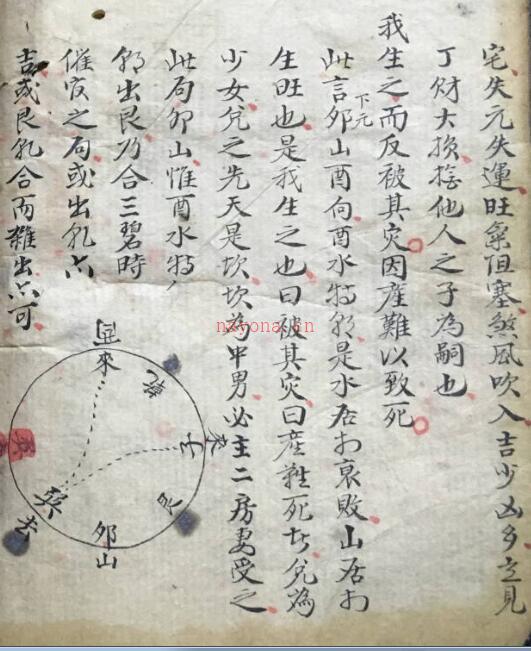 宅失元失運旺氣阻塞煞風吹入吉少凶多立見
丁財大損接他人之子為嗣也
我生之而反被其灾因産難以致死
此言下元卯山酉向酉水特朝是水居於衰敗山居於
生旺也是我生之也曰被其灾曰産難死者兌為
少女兌之先天是坎坎為中男必主二房妻受之
此局卯山惟酉水特
朝出艮乃合三碧時
催官之局或出乹六
吉或艮乹合而雜出亦可
來
乾
艮
去
卯山
nayona.cn